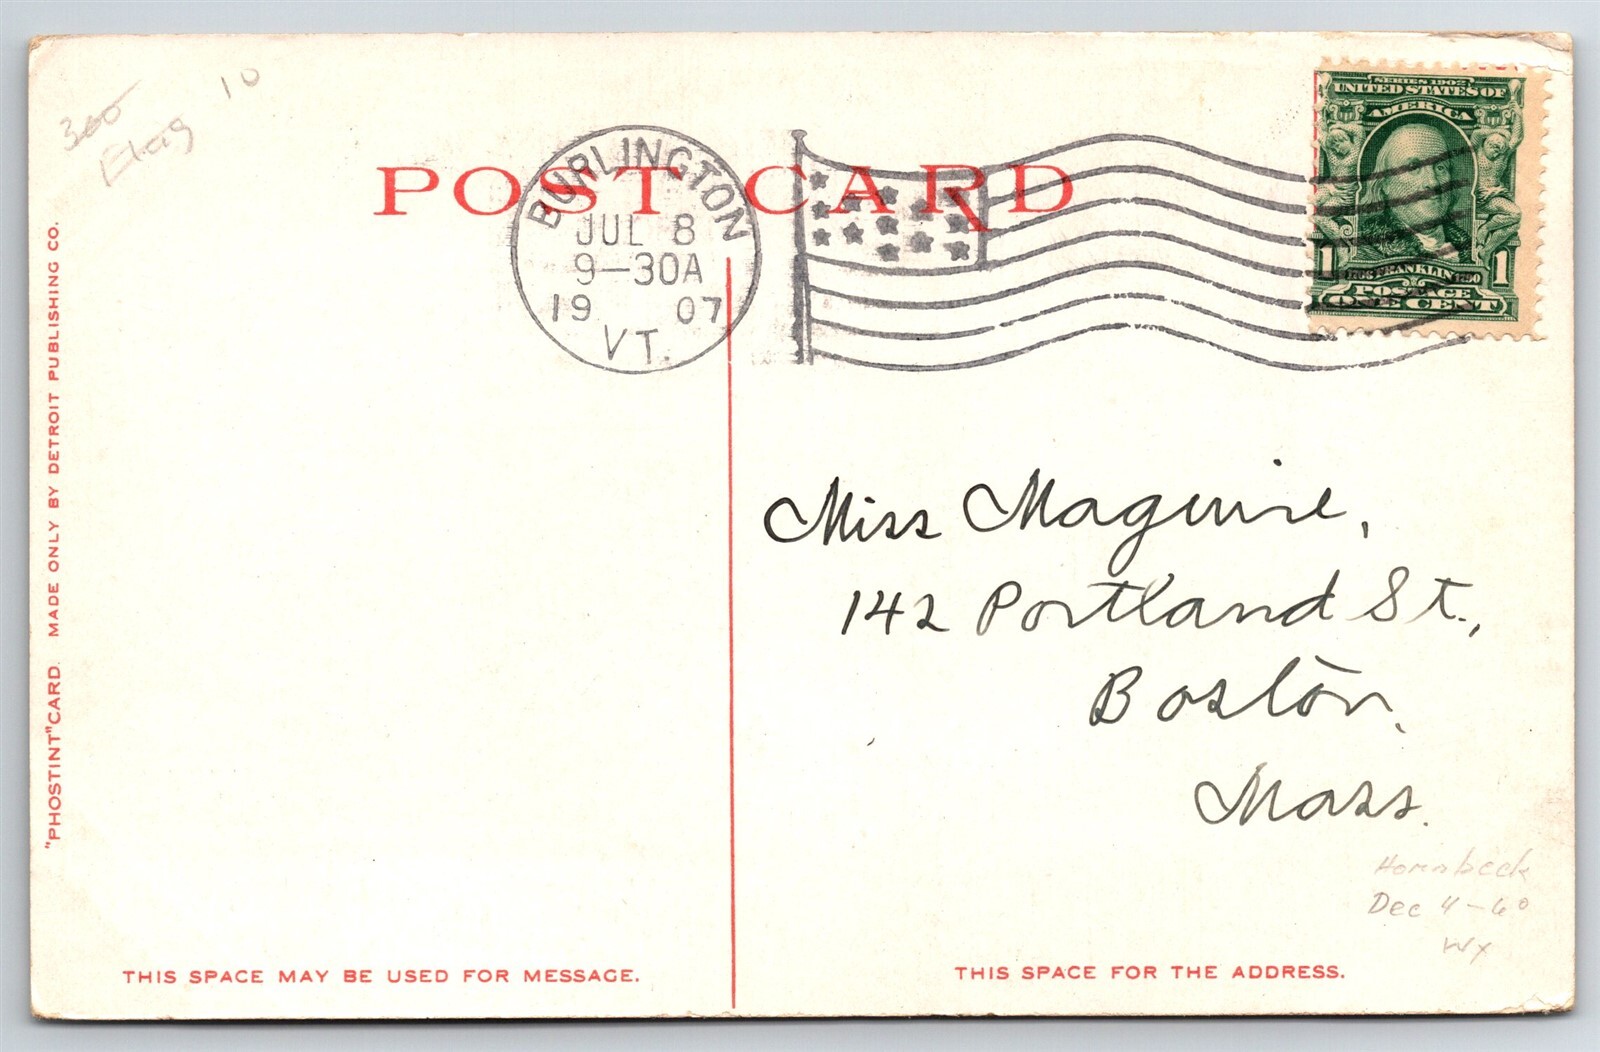 360 10
Flag
POST CARD
BURLINGTON
JUL 8
9-30A
19 07
VT.
SERIES 1902
UNITED STATES OF
AMERICA
1 1706 FRANKLIN 1790 1
POSTAGE
ONE CENT
"PHOSTINT" CARD. MADE ONLY BY DETROIT PUBLISHING CO.
Miss Maguire,
142 Portland St.,
Boston,
Mass.
Hornbeck
Dec 4-60
THIS SPACE MAY BE USED FOR MESSAGE.
THIS SPACE FOR THE ADDRESS.